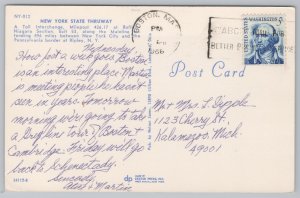 NY-512
NEW YORK STATE THRUWAY
A Toll Interchange, Milepost 426.17 at Buffalo
Niagara Section, Exit 53, along the Mainline
leading 496 miles between New York City and
Pennsylvania border at Ripley, N. Y.
BOSTON, MA
PM
1966
ABC
BETTER
WASHINGTON
5¢
Post Card
Wednesday
How just a week goes. Boston
is an interesting place. Martin
is meeting people he hasn't
seen in years. Tomorrow
morning we're going to take
a Grayline tour of Boston &
Cambridge. Friday, will go
back to Schenectady.
Sincerely
Aunt & Martin
Mr & Mrs L
1123 Cherry St
Kalamazoo, Mich.
49001
dp